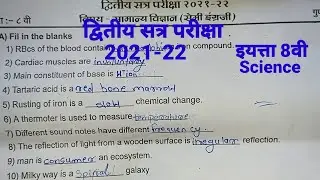 द्वितीय सत्र परीक्षा २०२१-२२
द्वितीय सत्र परीक्षा
2021-22
इयत्ता 8वी
Science
:- ८ वी
विषय - सामान्य विज्ञान (सेमी इंग्रजी)
A) Fill in the blanks
1) RBCs of the blood contain compound.
2) Cardiac muscles are involuntary
3) Main constituent of base is
4) Tartaric acid is a red bone marrow
5) Rusting of iron is a slow chemical change.
6) A thermoter is used to measure temperature
7) Different sound notes have different frequency.
8) The reflection of light from a wooden surface is irregular reflection.
9) man is consumer an ecosystem.
10) Milky way is a Spiral galaxy